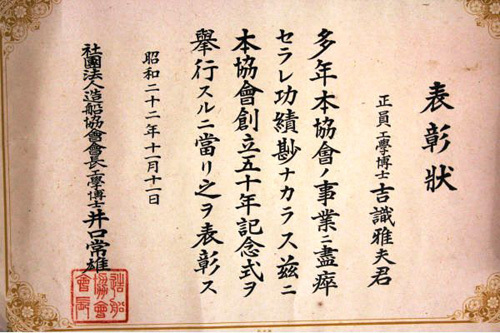 表彰狀
正員工學博士吉識雅夫君
多年本協會ノ事業ニ盡瘁
セラレ功績尠ナカラス茲ニ
本協會創立五十年記念式ヲ
舉行スルニ當リ之ヲ表彰ス
昭和二十二年十一月十一日
社團法人造船協會會長工學博士井口常雄
造船
協會
會長